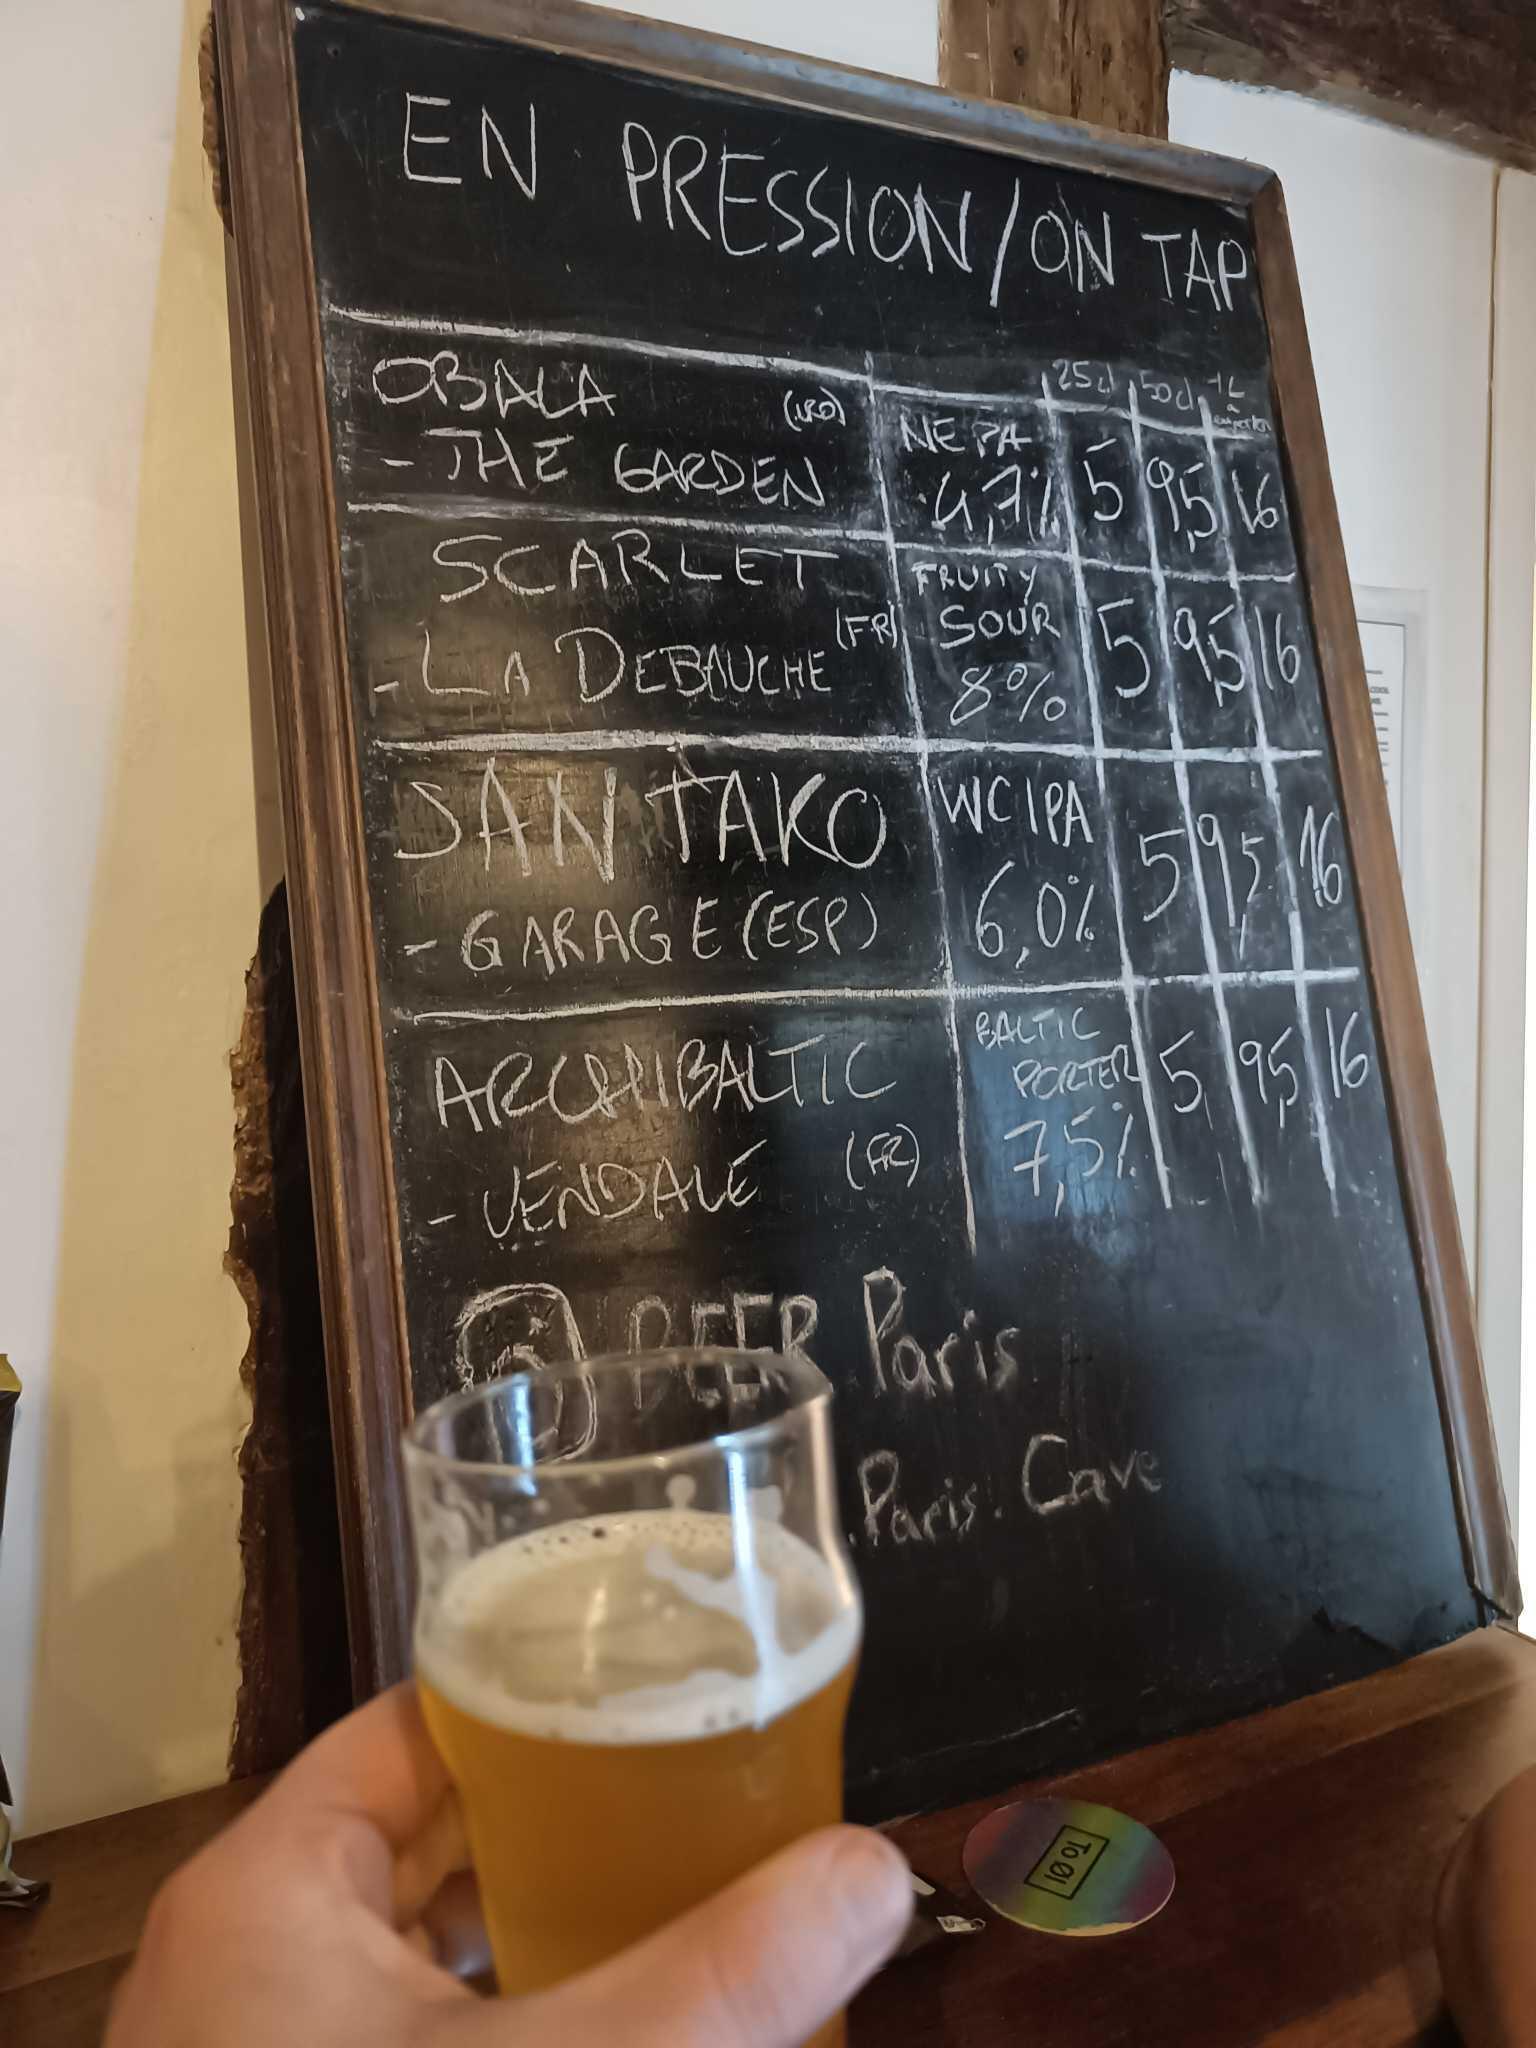 EN PRESSION/ON TAP
25cl 50cl 1L
à emporter
OBALA
- THE GARDEN
NEPA
4,7% 5 9,5 16
SCARLET
- LA DEBAUCHE (FR)
FRUITY
SOUR
8% 5 9,5 16
SAN TAKO
- GARAGE (ESP)
WCIPA
6,0% 5 9,5 16
ARCHIBALTIC
- VENDALE (FR)
BALTIC
PORTER
7,5% 5 9,5 16
BEER Paris
.Paris.Cave
TO ØL